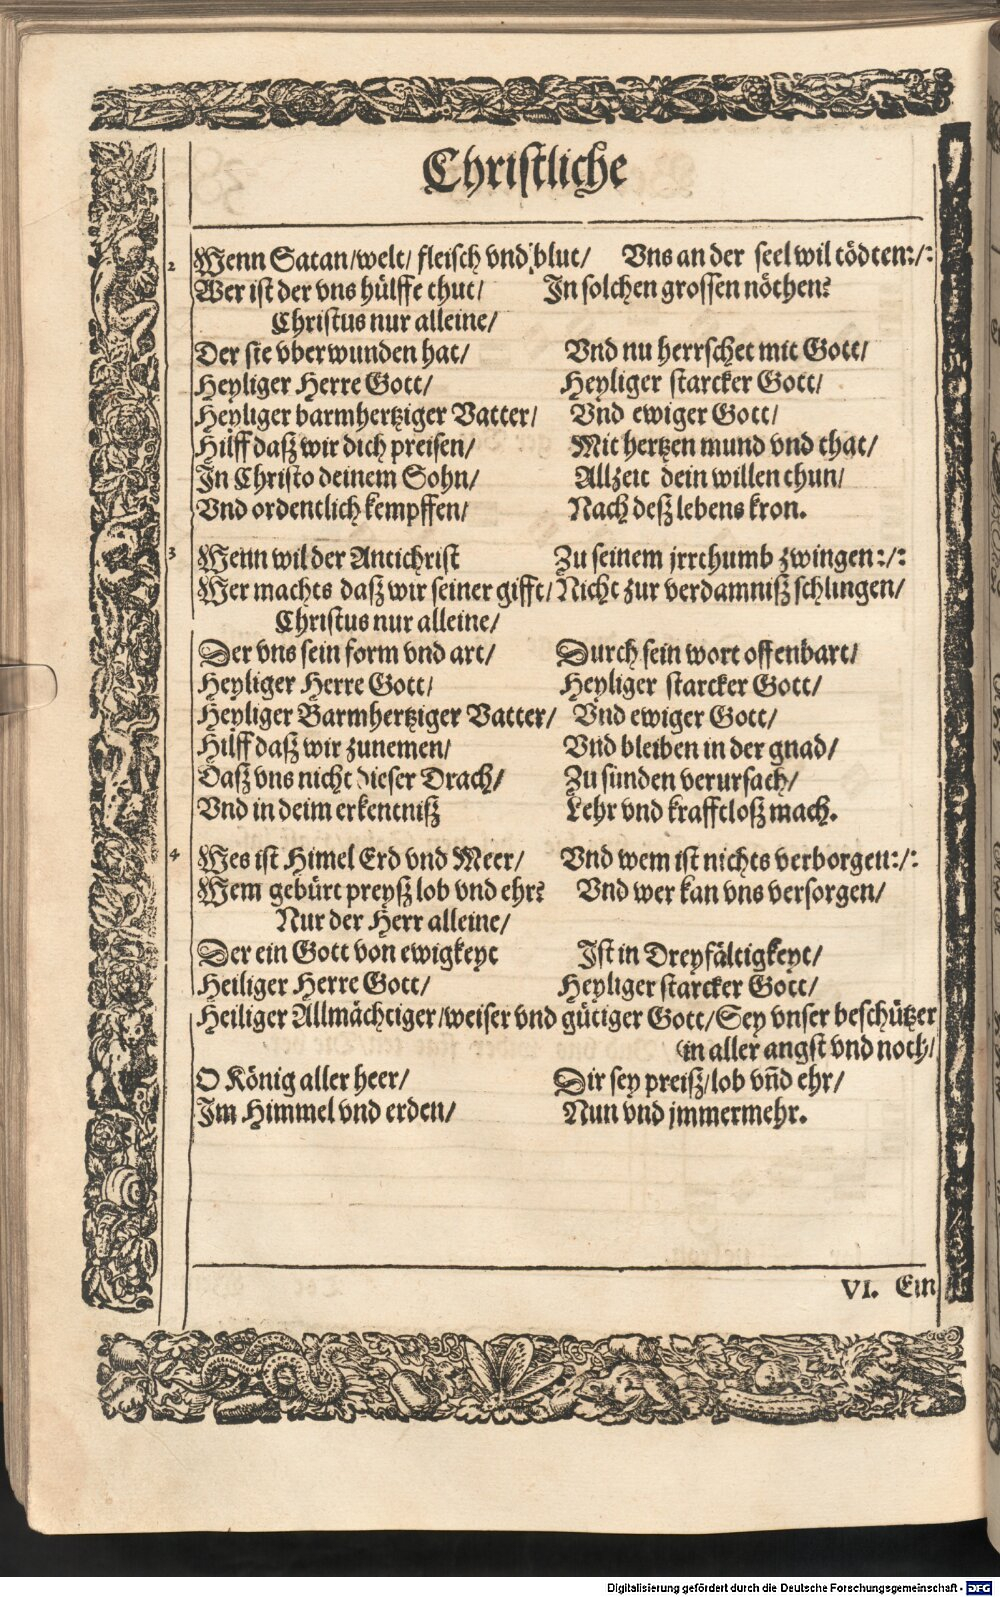 Christliche
2 Wenn Satan/welt/ fleisch vnd blut/ Vns an der seel wil tödten:/:
Wer ist der vns hülffe thut/ In solchen grossen nöthen?
Christus nur alleine/
Der sie vberwunden hat/ Vnd nu herrschet mit Gott/
Heyliger Herre Gott/ Heyliger starcker Gott/
Heyliger barmhertziger Vatter/ Vnd ewiger Gott/
Hilff daß wir dich preisen/ Mit hertzen mund vnd that/
In Christo deinem Sohn/ Allzeit dein willen thun/
Vnd ordentlich kempffen/ Nach deß lebens kron.
3 Wenn wil der Antichrist Zu seinem jrrthumb zwingen:/:
Wer machts daß wir seiner gifft/ Nicht zur verdamniß schlingen/
Christus nur alleine/
Der vns sein form vnd art/ Durch sein wort offenbart/
Heyliger Herre Gott/ Heyliger starcker Gott/
Heyliger Barmhertziger Vatter/ Vnd ewiger Gott/
Hilff daß wir zunemen/ Vnd bleiben in der gnad/
Daß vns nicht dieser Drach/ Zu sünden verursach/
Vnd in deim erkentniß Lehr vnd krafftloß mach.
4 Wes ist Himel Erd vnd Meer/ Vnd wem ist nichts verborgen:/:
Wem gebürt preyß lob vnd ehr? Vnd wer kan vns versorgen/
Nur der Herr alleine/
Der ein Gott von ewigkeyt Ist in Dreyfältigkeyt/
Heiliger Herre Gott/ Heyliger starcker Gott/
Heiliger Allmächtiger/weiser vnd gütiger Gott/Sey vnser beschützer
in aller angst vnd noth/
O König aller heer/ Dir sey preiß/lob vñd ehr/
Im Himmel vnd erden/ Nun vnd jmmermehr.
VI. Ein
Digitalisierung gefördert durch die Deutsche Forschungsgemeinschaft - DFG